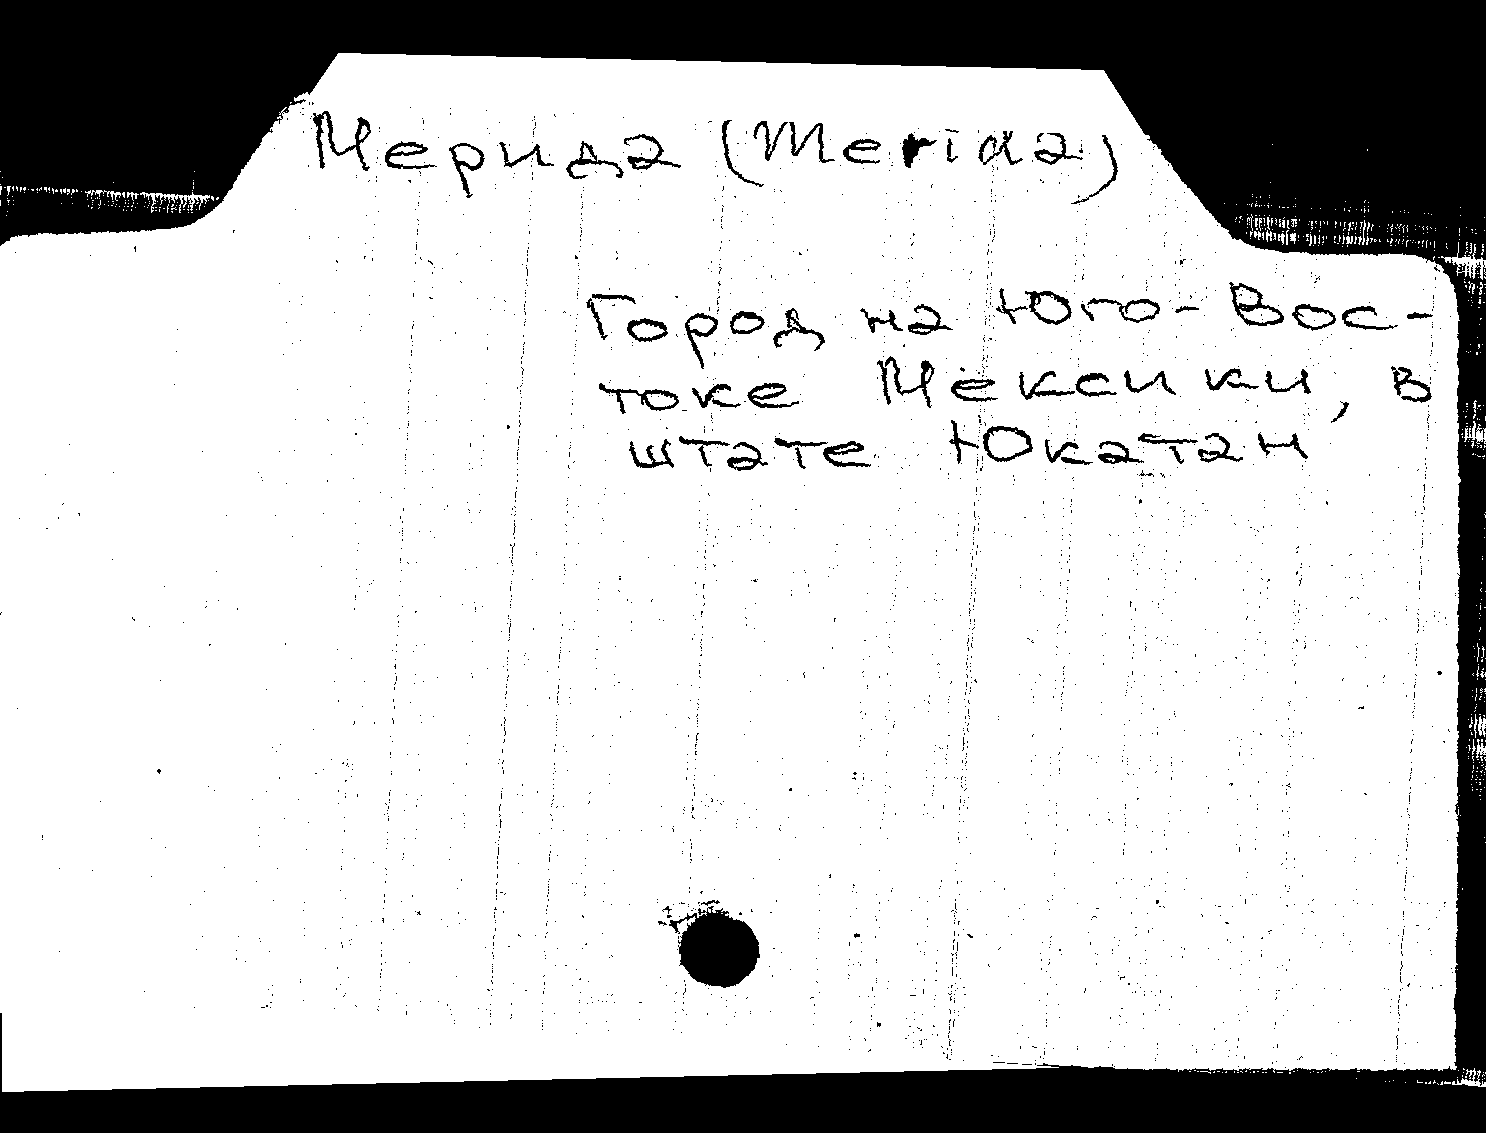 Мерида (Merida)
Город на Юго-Вос-
токе Мексики, в
штате Юкатан